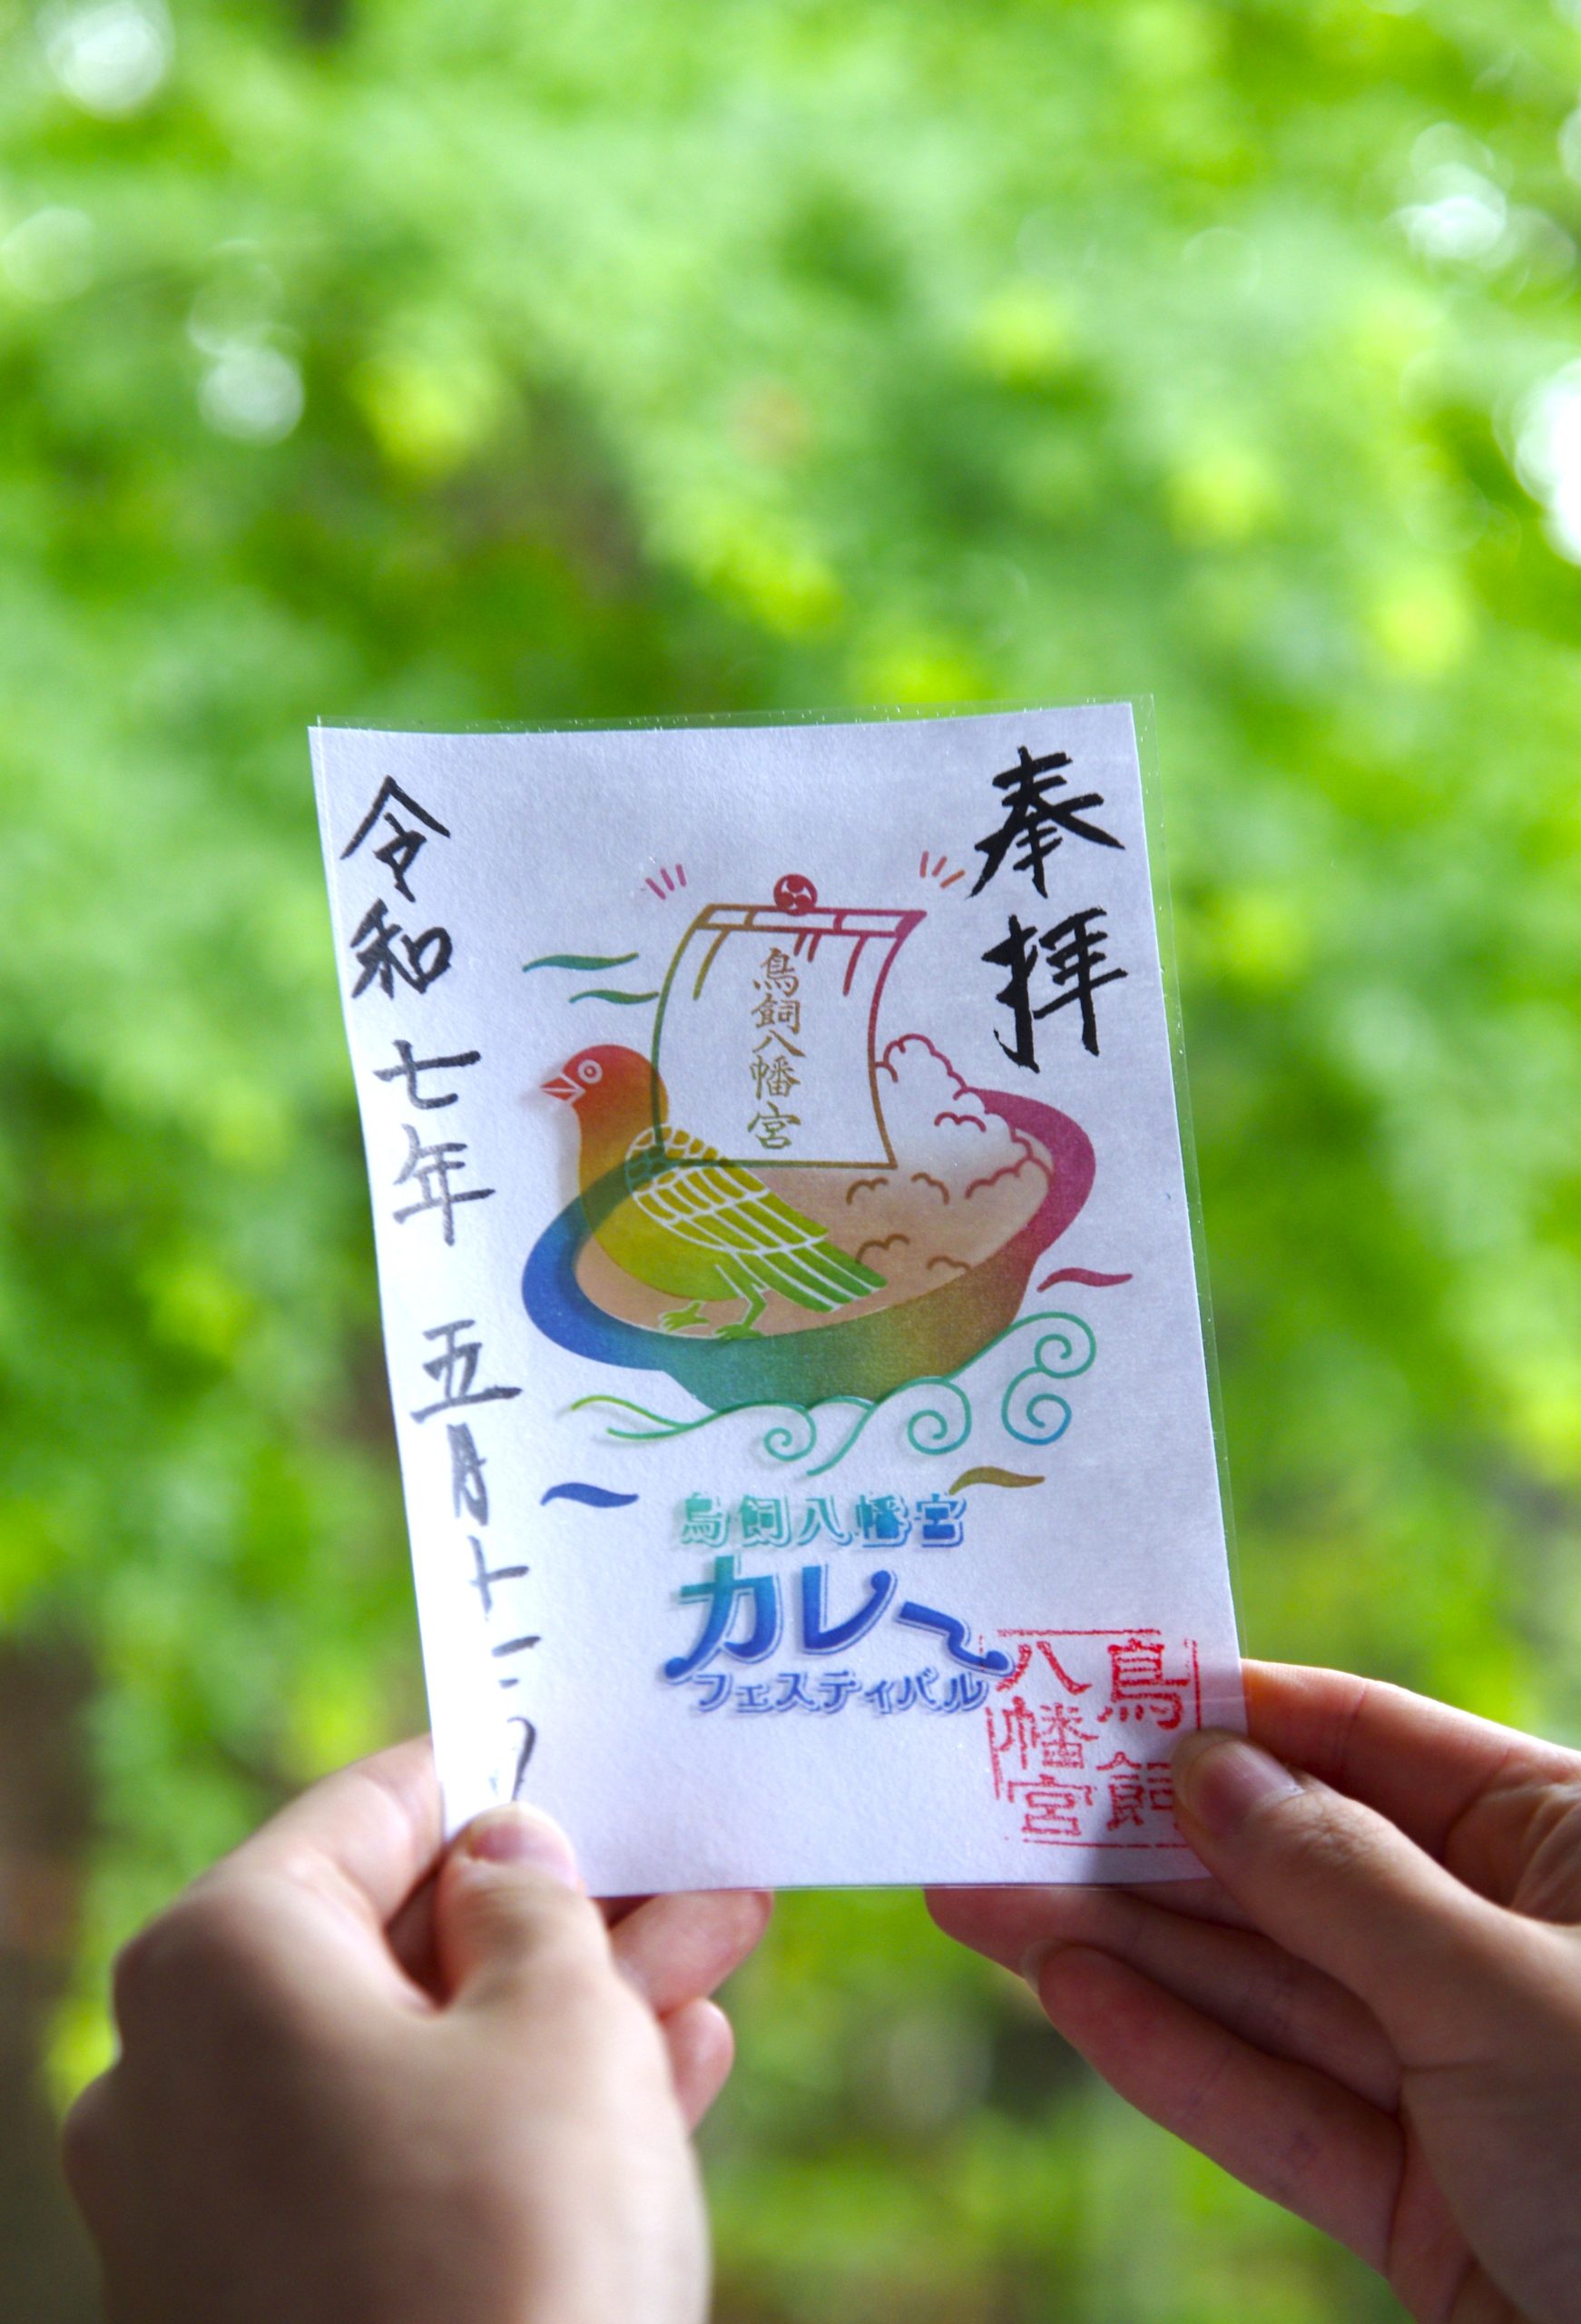 奉拝
鳥飼八幡宮
鳥飼八幡宮
カレー
フェスティバル
鳥飼
八幡宮
令和七年 五月十二日